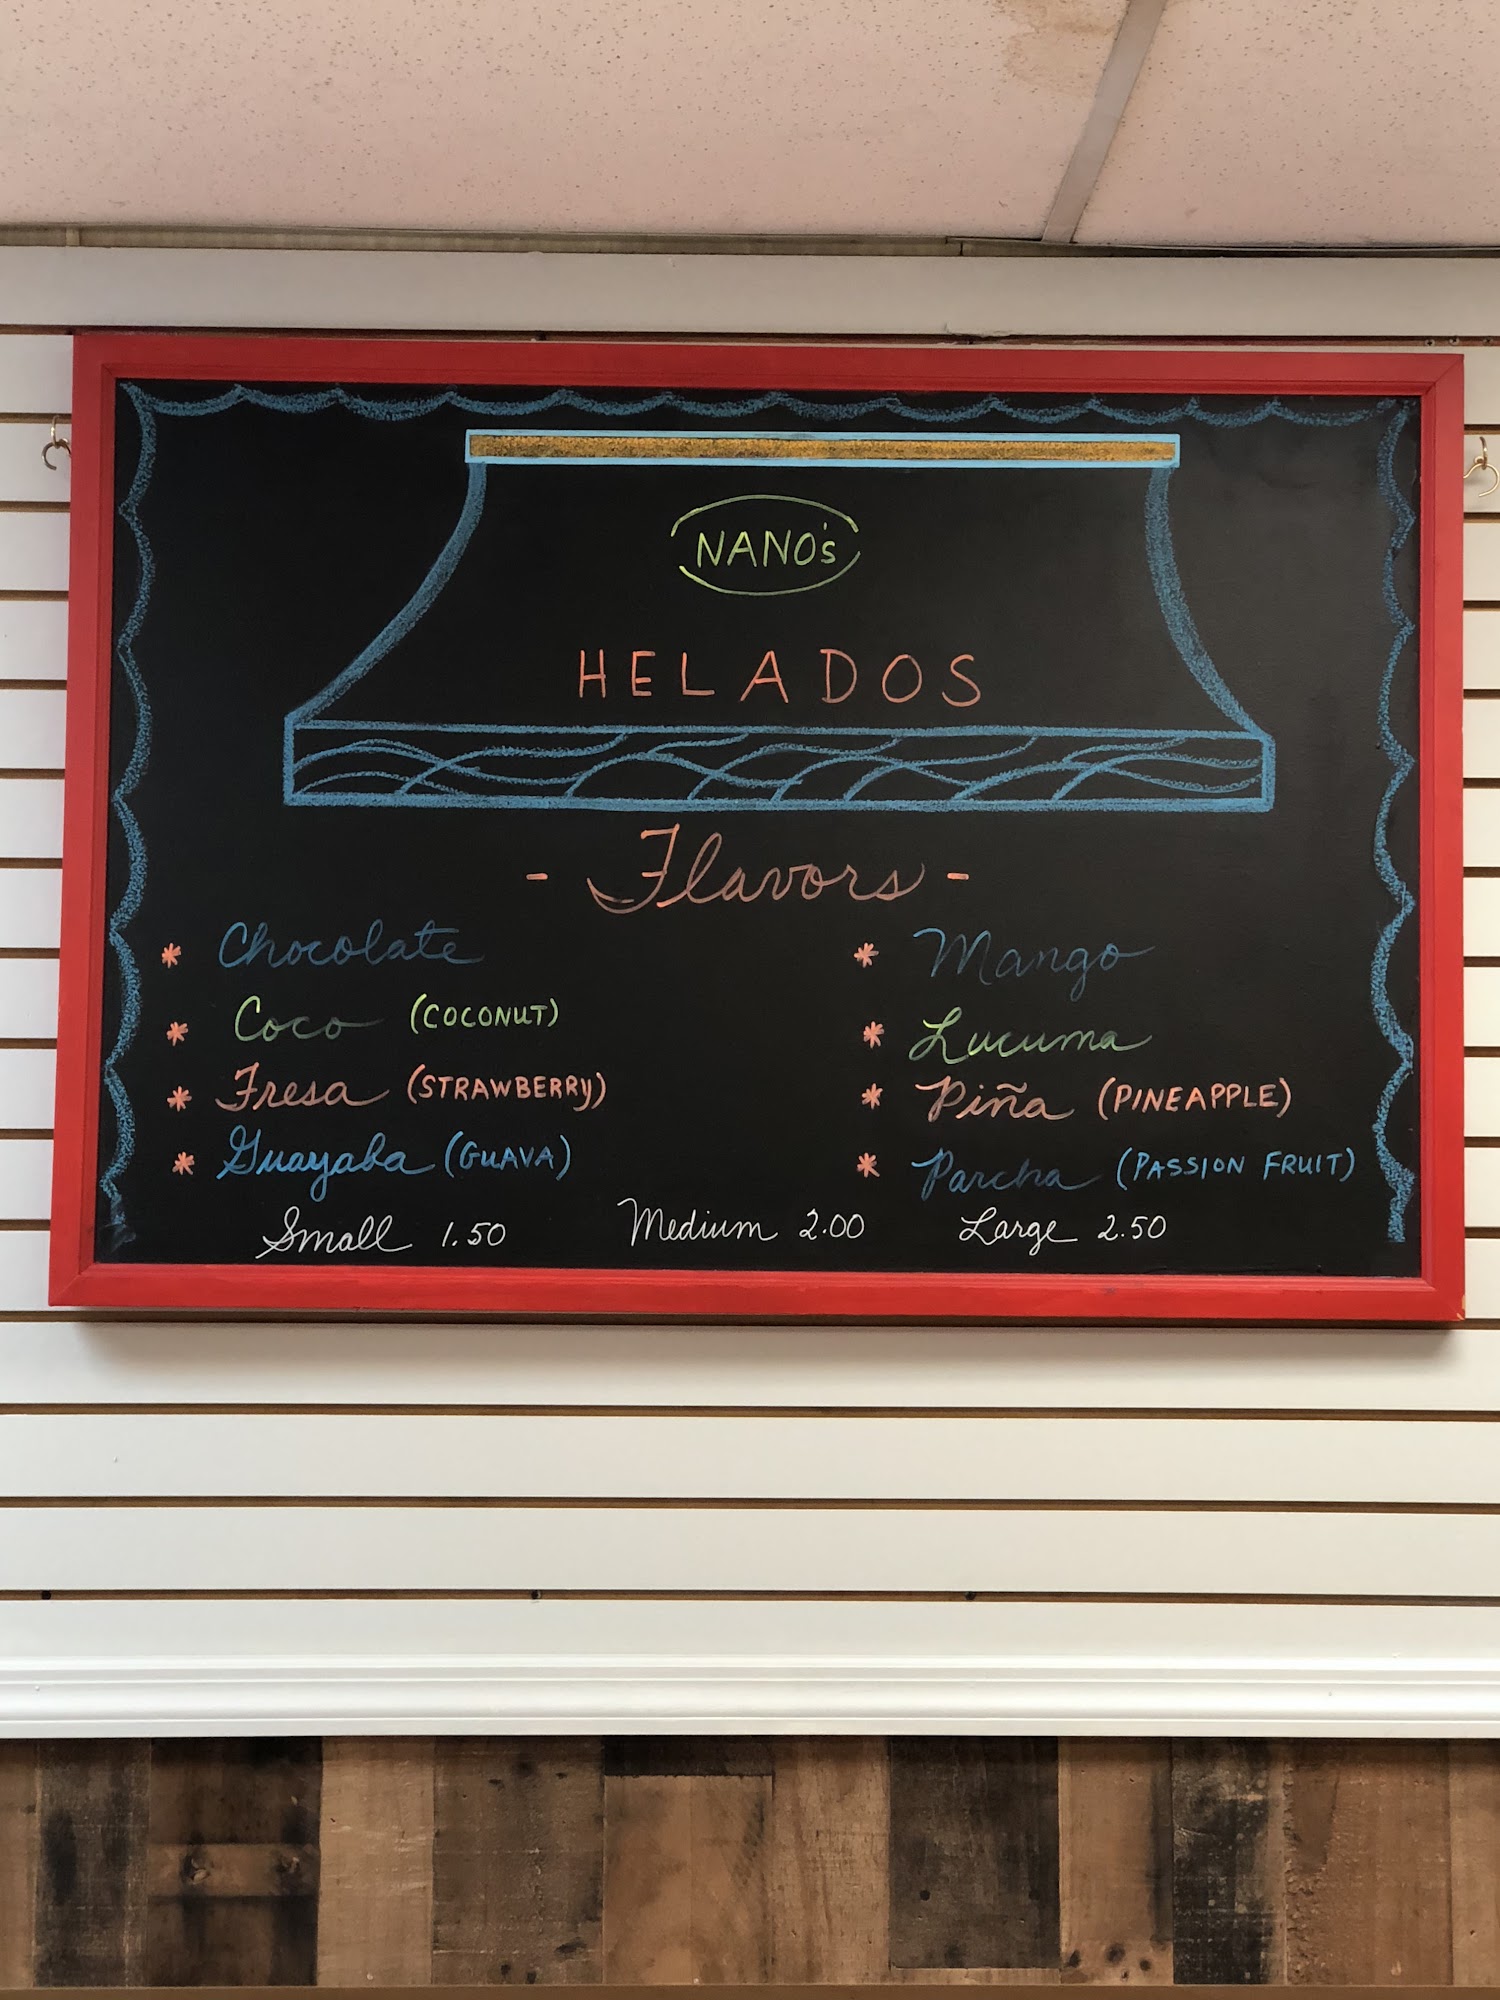 NANO's
HELADOS
- Flavors -
* Chocolate
* Coco (COCONUT)
* Fresa (STRAWBERRY)
* Guayaba (GUAVA)
* Mango
* Lucuma
* Piña (PINEAPPLE)
* Parcha (PASSION FRUIT)
Small 1.50 Medium 2.00 Large 2.50